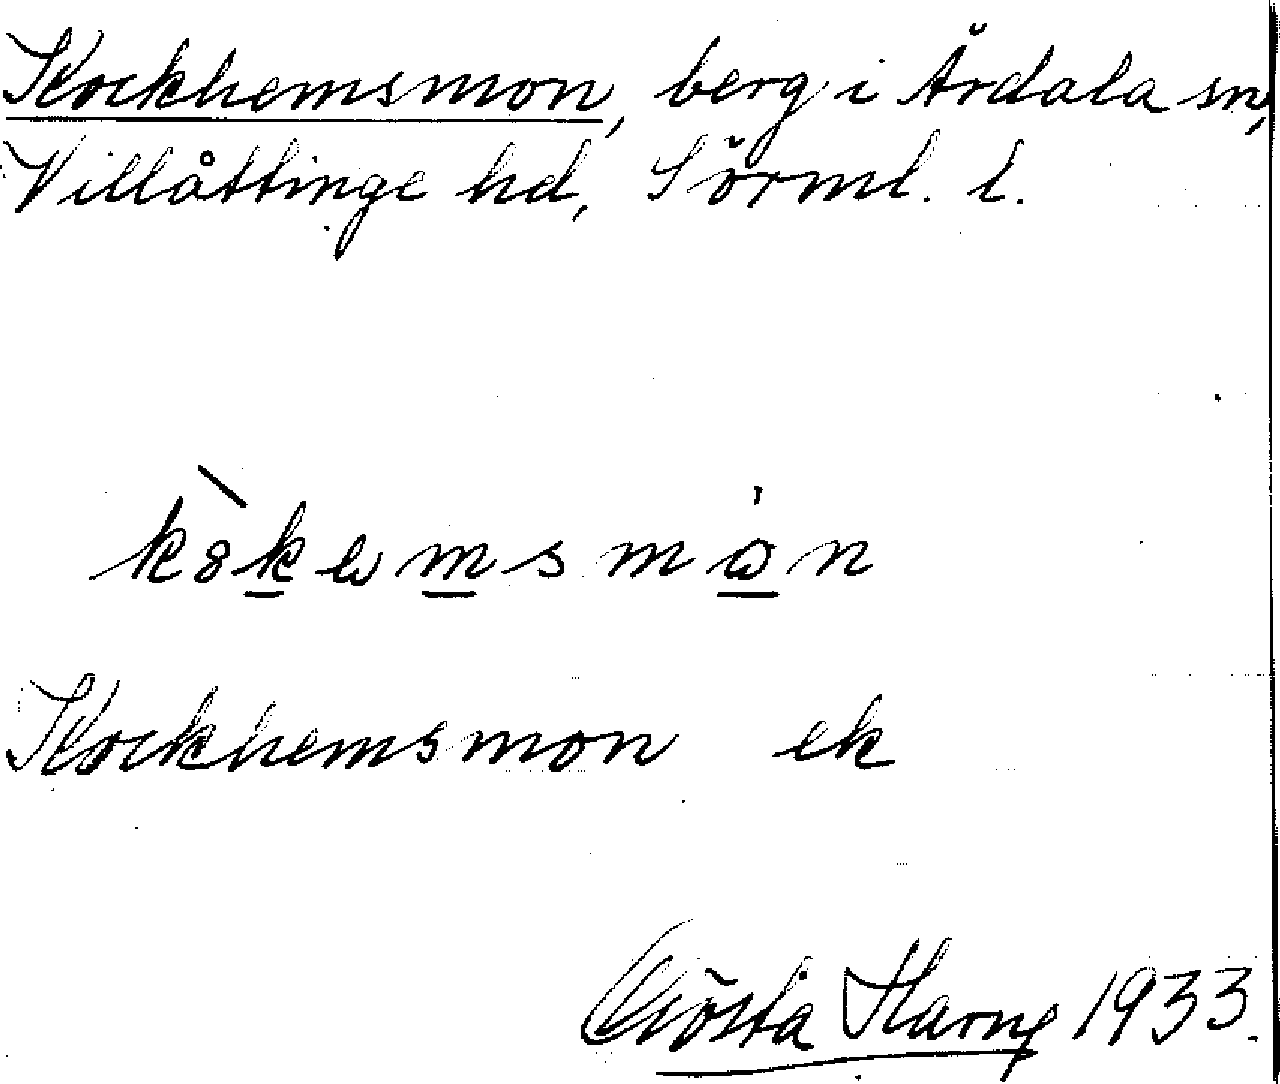 Kockhemsmon, berg i Årdala sn,
Villåttinge hd, Sörml. l.
kòkemsmån
Kockhemsmon ek
Gösta Harne 1933.